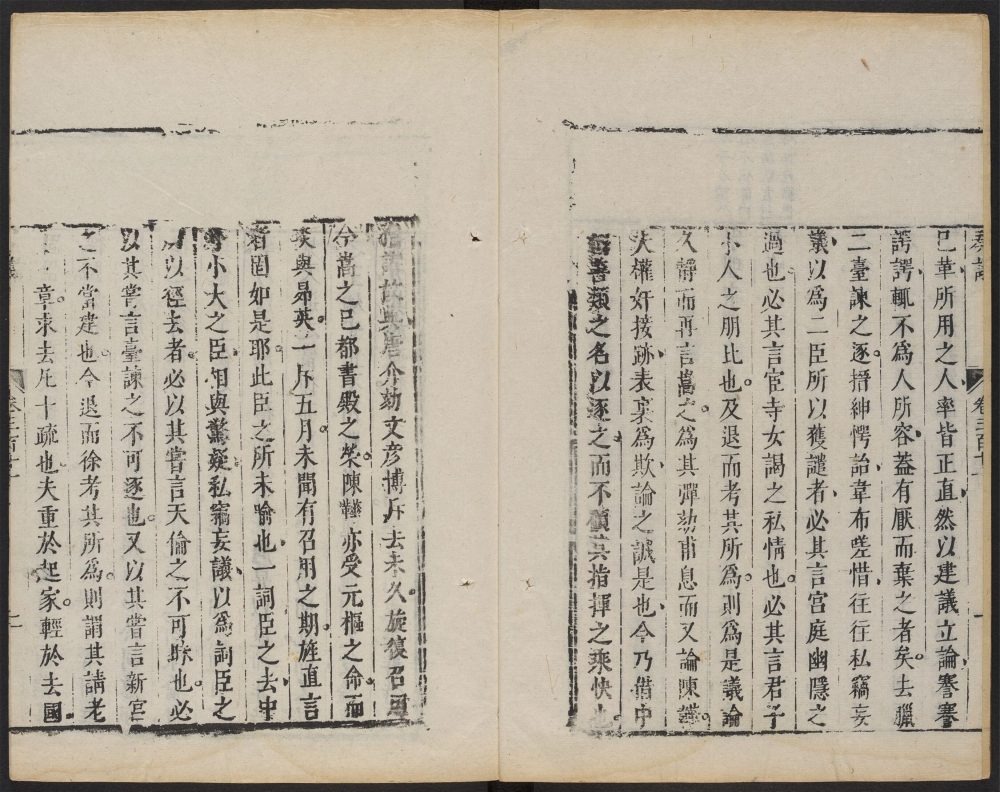 奏議
卷三百十
一
巳華所用之人率皆正直然以建議立論謇謇
諤諤輒不爲人所容蓋有厭而棄之者矣去臘
二臺諫之逐搢紳愕詒韋布嗟惜往往私竊妄
議以爲二臣所以獲譴者必其言宮庭幽隱之
過也必其言宦寺女謁之私情也必其言君子
小人之朋比也及退而考其所爲則爲是議論
久鬱而再言嵩之爲其彈劾甫息而又論陳韡
大權奸接跡表裏爲欺論之誠是也今乃借中
善類之名以逐之而不顧其指揮之乘快
故典唐介劾文彥博斥去未久旋復召
今嵩之巳都書殿之榮陳韡亦受元樞之命而
與昴英一斥五月未聞有召用之期旌直言
者固如是耶此臣之所未喻也一詞臣之去中
小大之臣相與驚疑私竊妄議以爲詞臣之
以徑去者必以其嘗言天倫之不可睽也必
以其嘗言臺諫之不可逐也又以其嘗言新宮
之不當建也今退而徐考其所爲則謂其請老
章求去凡十疏也夫重於起家輕於去國
卷三百十